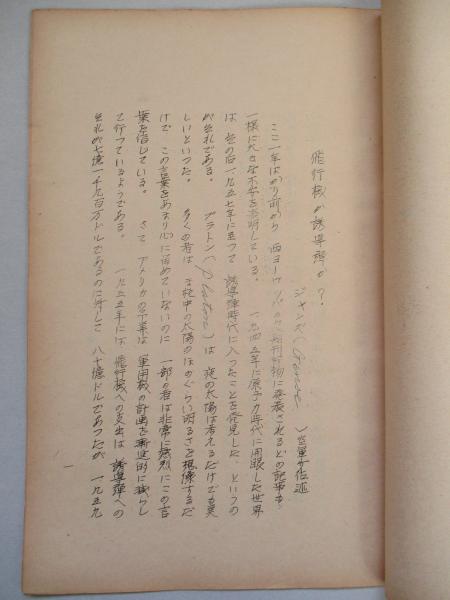 飛行機か誘導弾か?
ジャンズ( )空軍少佐述
ここ一年ばかり前から 西ヨーロッパの 刊行物に発表されるどの記事も
一様に大きな不安を表明している。 一九四五年に原子力時代に開眼した世界
は 其の后一九五七年に至って 誘導弾時代に入ったことを発見した というの
が其れである。 プラトン(Platon)は 夜の太陽は考えるだけでも美
しいといった。 多くの者は 夜の太陽のほのぐらい明るさを想像するだ
けで この言葉をあまり心に留めていないのに 一部の者は非常に強烈にこの言
葉を信じている。 さて アメリカの 軍用機の計画を 的に減らし
て行っているようである。 一九五五年には 飛行機への支出は 誘導弾への
其れが七億一千九百万ドルであるのに対して 八十億ドルであったが 一九五九
一